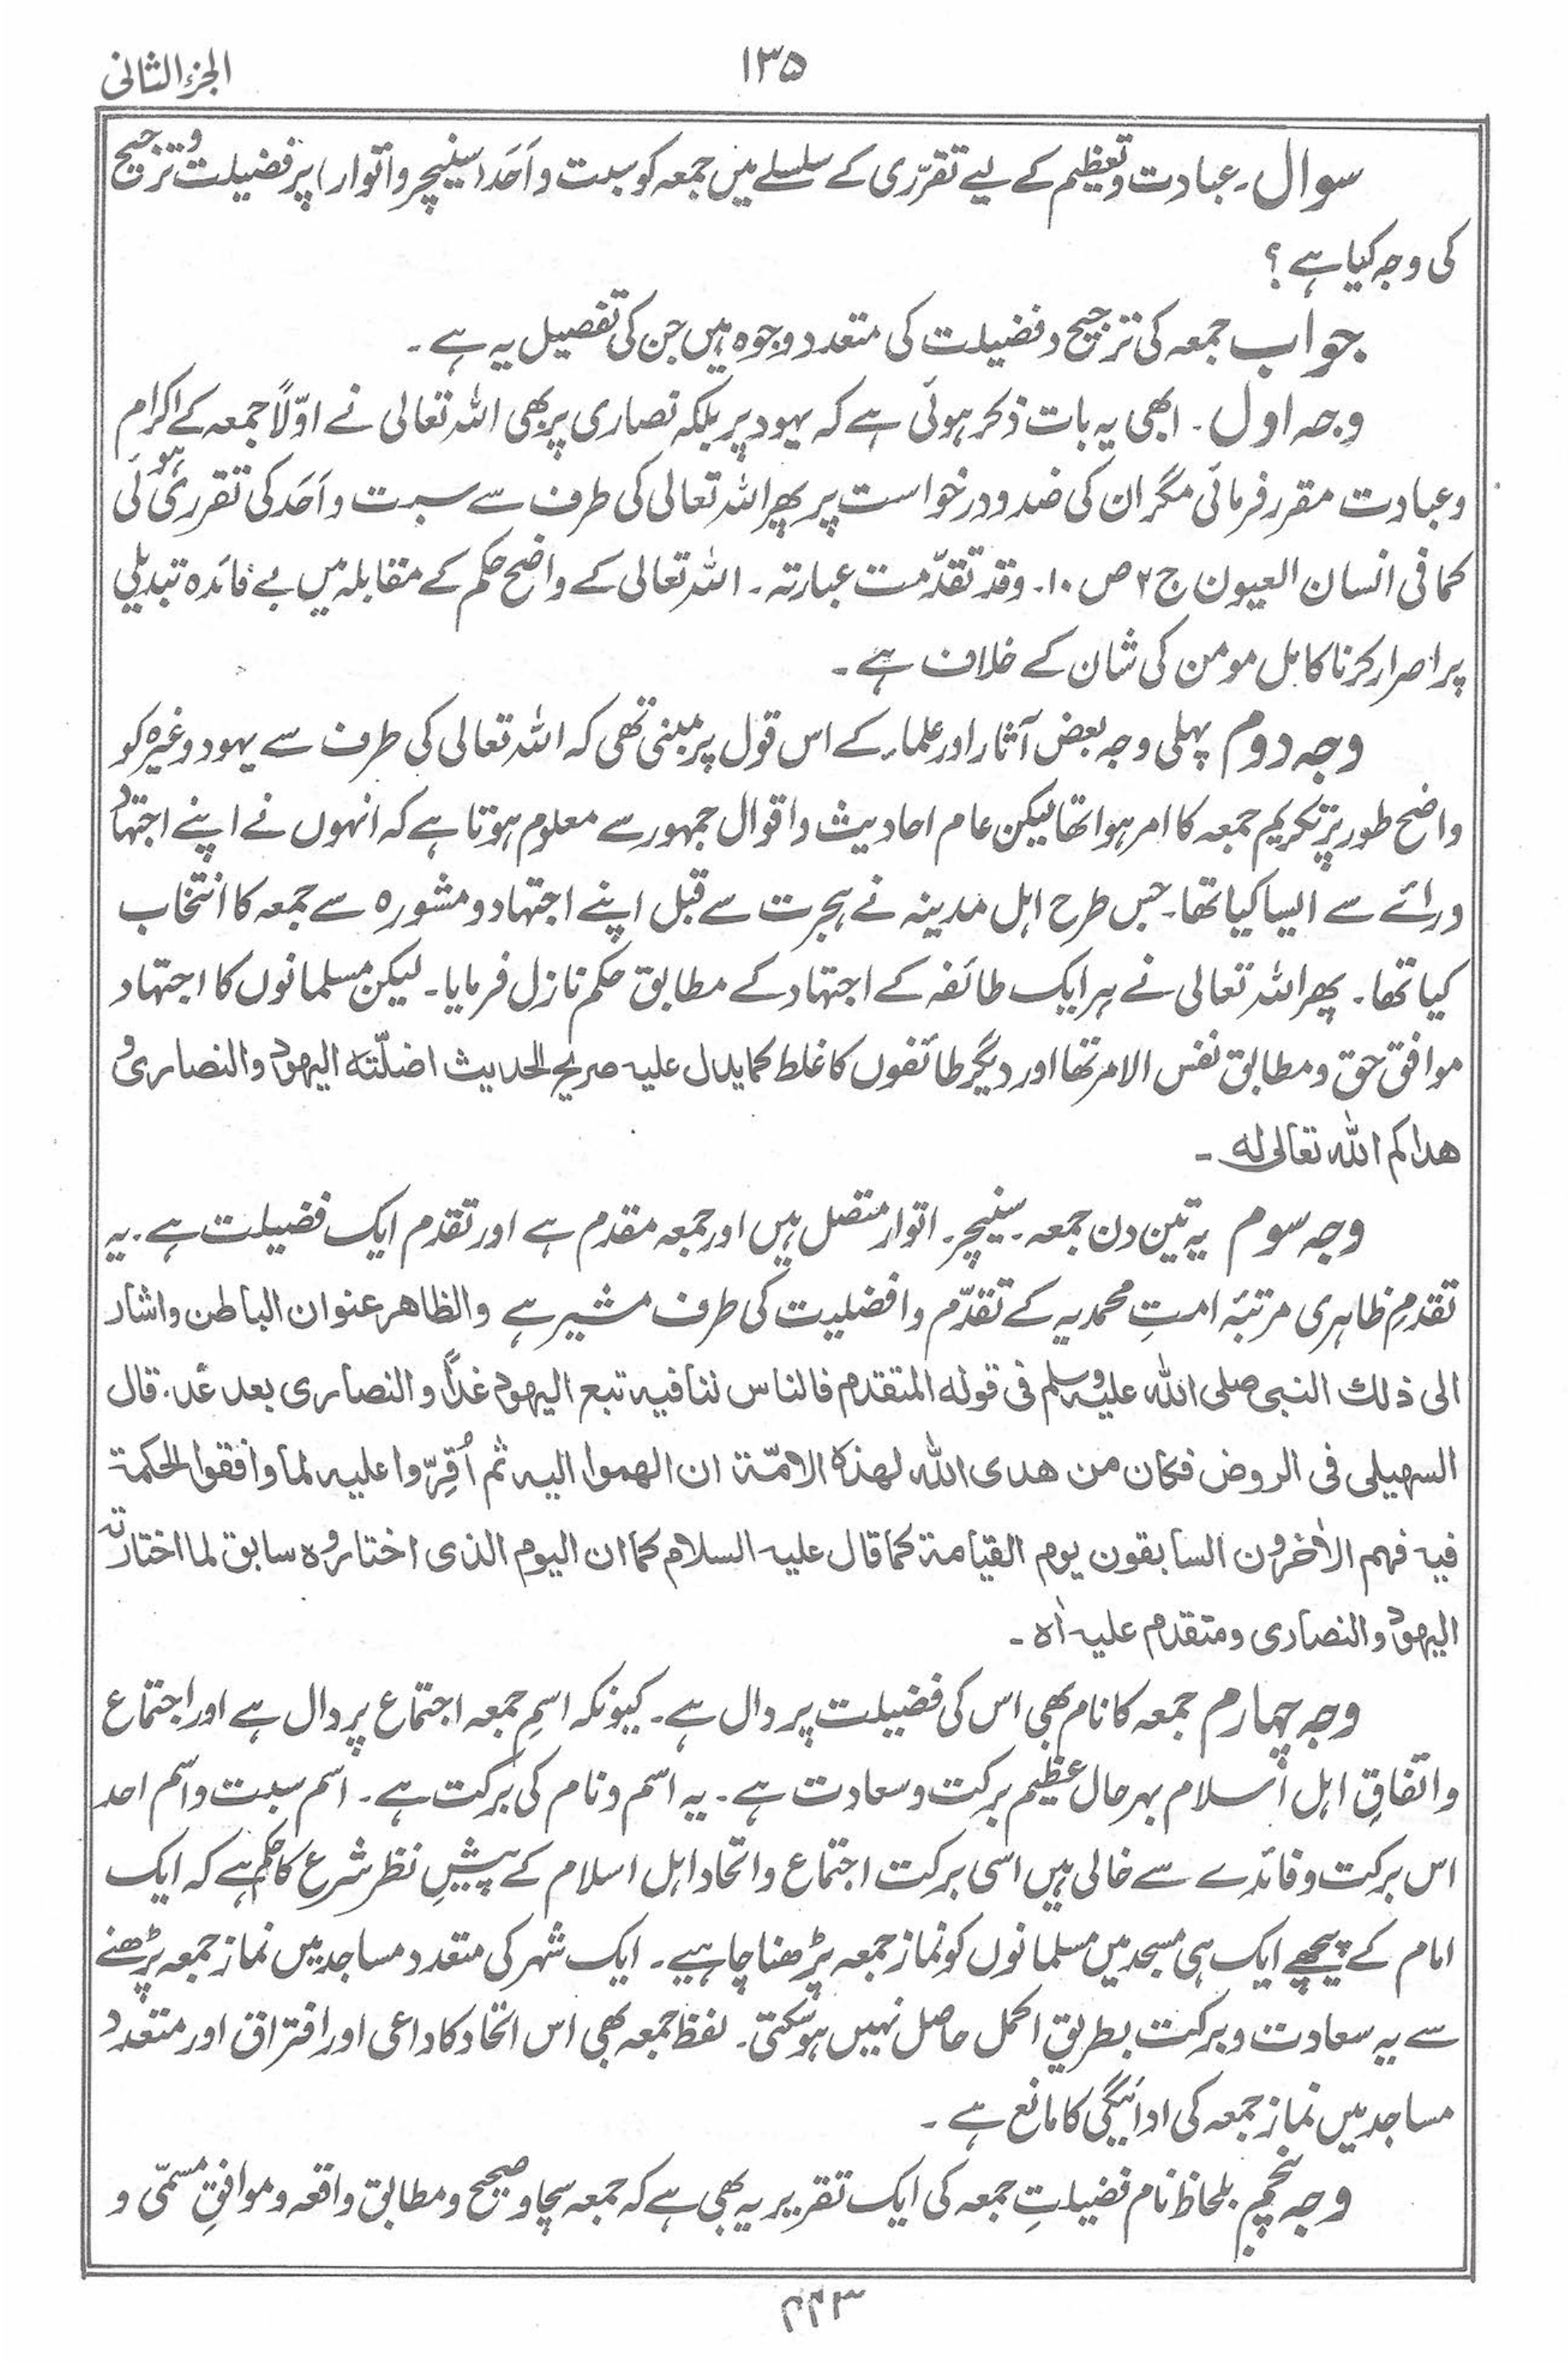 ۱۳۵
الجزء الثانی
سوال۔ عبادت و تعظیم کے لیے تقرّری کے سلسلے میں جمعہ کو سبت و اَحَد (سنیچر و اتوار) پر فضیلت و ترجیح
کی وجہ کیا ہے ؟
جواب جمعہ کی ترجیح و فضیلت کی متعدد وجوہ ہیں جن کی تفصیل یہ ہے ۔
وجہ اول ۔ ابھی یہ بات ذکر ہوئی ہے کہ یہود پر بلکہ نصاری پر بھی اللہ تعالی نے اوّلاً جمعہ کے اکرام
و عبادت مقرر فرمائی مگر ان کی ضد و درخواست پر پھر اللہ تعالی کی طرف سے سبت و اَحَد کی تقرری ہوئی
کما فی انسان العیون ج ۲ ص ۱۰۔ وقد تقدّمت عبارتہ ۔ اللہ تعالی کے واضح حکم کے مقابلہ میں بے فائدہ تبدیلی
پر اصرار کرنا کامل مومن کی شان کے خلاف ہے ۔
وجہ دوم پہلی وجہ بعض آثار اور علماء کے اس قول پر مبنی تھی کہ اللہ تعالی کی طرف سے یہود وغیرہ کو
واضح طور پر تکریم جمعہ کا امر ہوا تھا لیکن عام احادیث و اقوال جمہور سے معلوم ہوتا ہے کہ انہوں نے اپنے اجتہاد
و رائے سے ایسا کیا تھا۔ جس طرح اہل مدینہ نے ہجرت سے قبل اپنے اجتہاد و مشورہ سے جمعہ کا انتخاب
کیا تھا ۔ پھر اللہ تعالی نے ہر ایک طائفہ کے اجتہاد کے مطابق حکم نازل فرمایا۔ لیکن مسلمانوں کا اجتہاد
موافق حق و مطابق نفس الامر تھا اور دیگر طائفوں کا غلط کما یدل علیہ صریح الحدیث اضلّتہ الیھود والنصاری و
ھداکم اللہ تعالی لہ ۔
وجہ سوم یہ تین دن جمعہ ۔ سنیچر ۔ اتوار متصل ہیں اور جمعہ مقدم ہے اور تقدم ایک فضیلت ہے ۔ یہ
تقدمِ ظاہری مرتبۂ امتِ محمدیہ کے تقدّم و افضلیت کی طرف مشیر ہے والظاھر عنوان الباطن واشار
الی ذلك النبی صلی اللہ علیہ وسلم فی قولہ المتقدم فالناس لنا فیہ تبع الیھود غدًا والنصاری بعد غد۔ قال
السھیلی فی الروض فکان من ھدی اللہ لھذہ الامّۃ ان الھموا الیہ ثم اُقِرّوا علیہ لما وافقوا الحکمۃ
فیہ فھم الاٰخرون السابقون یوم القیامۃ کما قال علیہ السلام کما ان الیوم الذی اختاروہ سابق لما اختارتہ
الیھود والنصاری ومتقدم علیہ اٰہ ۔
وجہ چہارم جمعہ کا نام بھی اس کی فضیلت پر دال ہے ۔ کیونکہ اسمِ جمعہ اجتماع پر دال ہے اور اجتماع
و اتفاقِ اہل اسلام بہرحال عظیم برکت و سعادت ہے ۔ یہ اسم و نام کی برکت ہے ۔ اسم سبت و اسم احد
اس برکت و فائدے سے خالی ہیں اسی برکت اجتماع و اتحاد اہل اسلام کے پیشِ نظر شرع کا حکم ہے کہ ایک
امام کے پیچھے ایک ہی مسجد میں مسلمانوں کو نماز جمعہ پڑھنا چاہیے ۔ ایک شہر کی متعدد مساجد میں نماز جمعہ پڑھنے
سے یہ سعادت و برکت بطریق اکمل حاصل نہیں ہو سکتی ۔ لفظ جمعہ بھی اس اتحاد کا داعی اور افتراق اور متعدد
مساجد میں نماز جمعہ کی ادائیگی کا مانع ہے ۔
وجہ پنجم بلحاظ نام فضیلتِ جمعہ کی ایک تقریر یہ بھی ہے کہ جمعہ سچا و صحیح و مطابق واقعہ و موافقِ مسمّی و
۴۴۳